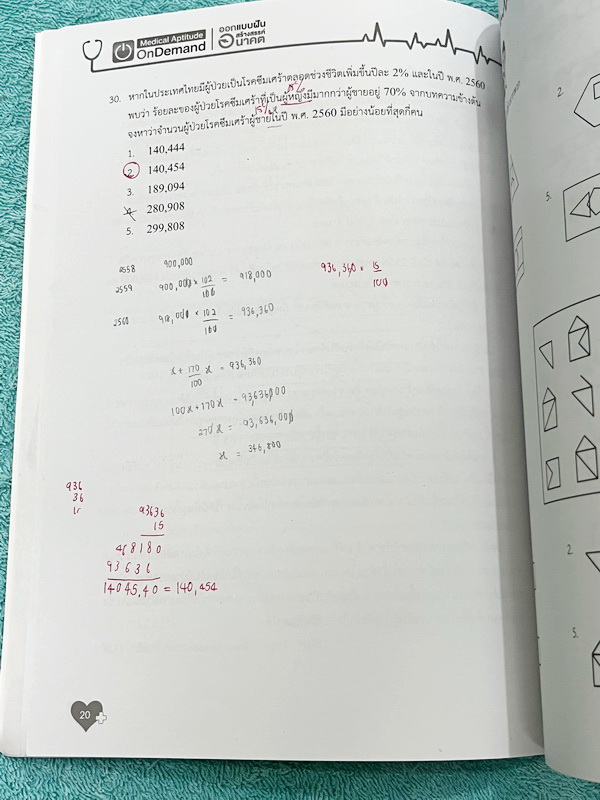 Medical Aptitude
OnDemand
ออกแบบฝัน
สร้างสรรค์
อนาคต
30. หากในประเทศไทยมีผู้ป่วยเป็นโรคซึมเศร้าตลอดช่วงชีวิตเพิ่มขึ้นปีละ 2% และในปี พ.ศ. 2560
15%
พบว่า ร้อยละของผู้ป่วยโรคซึมเศร้าที่เป็นผู้หญิงมีมากกว่าผู้ชายอยู่ 70% จากบทความข้างต้น
15%
จงหาว่าจำนวนผู้ป่วยโรคซึมเศร้าผู้ชายในปี พ.ศ. 2560 มีอย่างน้อยที่สุดกี่คน
1. 140,444
2. 140,454
3. 189,094
4. 280,908
5. 299,808
2558 900,000
2559 900,000 × 102/100 = 918,000
936,360 × 15/100
2560 918,000 × 102/100 = 936,360
x + 170/100 x = 936,360
100x + 170x = 93,636,000
270x = 93,636,000
x = 346,800
936
36
93636
15
468180
93636
14045,40 = 140,454
20
2.
5.
2.
5.